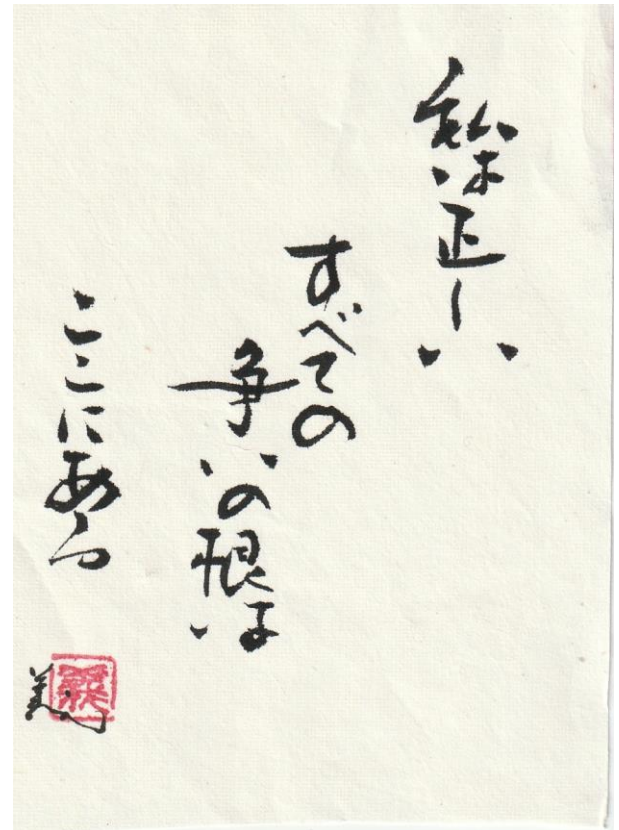 私は正しい
すべての
争いの根は
ここにある